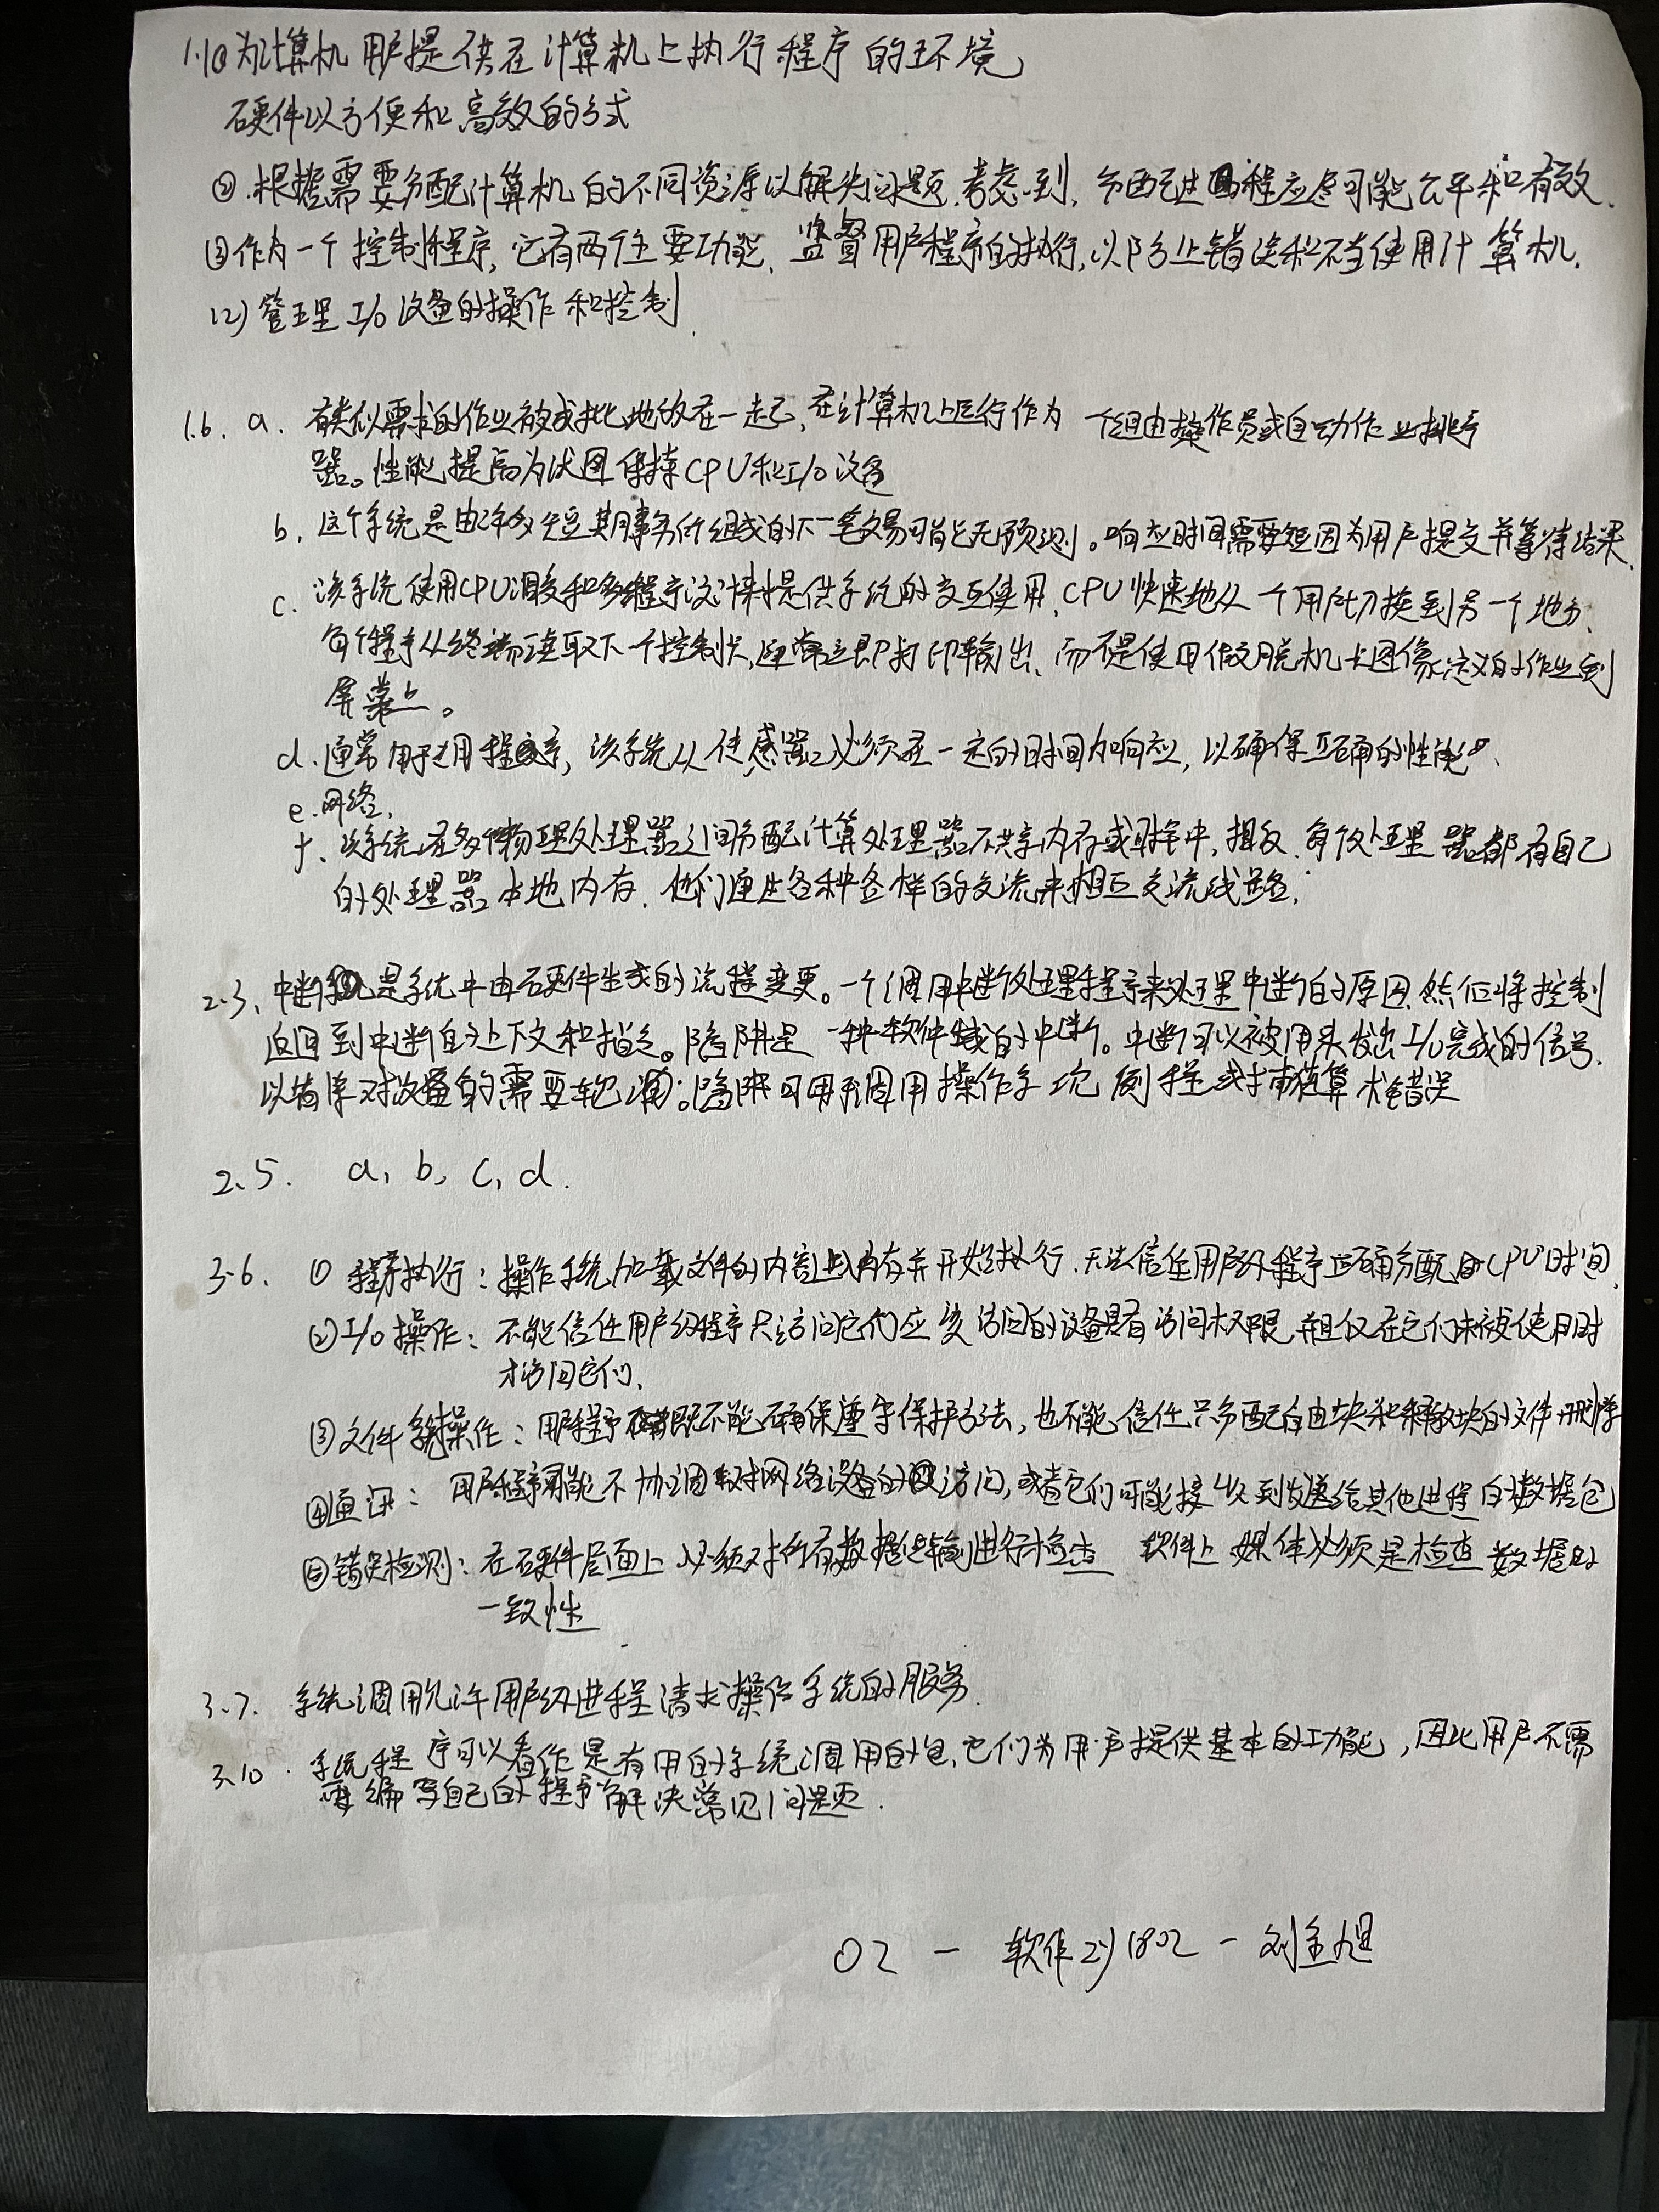 1.1①为计算机用户提供在计算机上执行程序的环境
硬件以方便和高效的方式
②.根据需要分配计算机的不同资源以解决问题.考虑到,分配过程应尽可能公平和有效.
③作为一个控制程序,它有两个主要功能、监督用户程序的执行,以防止错误和不当使用计算机.
(2)管理I/O设备的操作和控制
1.6. a. 有类似需求的作业被成批地放在一起,在计算机上运行作为一个组由操作员或自动作业排序
器。性能提高为试图保持CPU和I/O设备
b. 这个系统是由许多短期事务所组成的下一笔交易可能无预测。响应时间需要短因为用户提交并等待结果.
c. 该系统使用CPU调度和多程序设计来提供系统的交互使用.CPU快速地从一个用户切换到另一个地方.
每个程序从终端读取下一个控制卡,通常立即打印输出、而不是使用假脱机卡图像定义的作业到
屏幕上。
d.通常用于专用程序,该系统从传感器必须在一定的时间内响应,以确保正确的性能.
e.网络.
f.该系统在多个物理处理器之间分配计算处理器不共享内存或时钟,相反.每个处理器都有自己
的处理器本地内存.他们通过各种各样的交流来相互交流线路.
2.3、中断是系统中由硬件生成的流程变更。一个调用中断处理程序来处理中断的原因.然后将控制
返回到中断的上下文和指令。陷阱是一种软件生成的中断。中断可以被用来发出I/O完成的信号.
以排除对设备的需要轮询。陷阱可用于调用操作系统例程或捕获算术错误
2.5. a, b, c, d.
3.6. ① 程序执行:操作系统加载文件的内容进内存并开始执行.无法信任用户级程序正确分配CPU时间.
②I/O操作:不能信任用户级程序只访问它们应该访问的设备具有访问权限,并且仅在它们未被使用时
才访问它们.
③文件系统操作:用户程序既不能确保遵守保护方法,也不能信任只分配自由块和释放块的文件删除
④通讯:用户程序可能不协调对网络设备的访问,或者它们可能接收到发送给其他进程的数据包
⑤错误检测:在硬件层面上必须对所有数据传输进行检查 软件上 媒体必须是检查数据的
一致性
3.7. 系统调用允许用户级进程请求操作系统的服务.
3.10.系统程序可以看作是有用的系统调用的包,它们为用户提供基本的功能,因此用户不需
要编写自己的程序解决常见问题.
02 — 软件zy1802 — 刘金旭